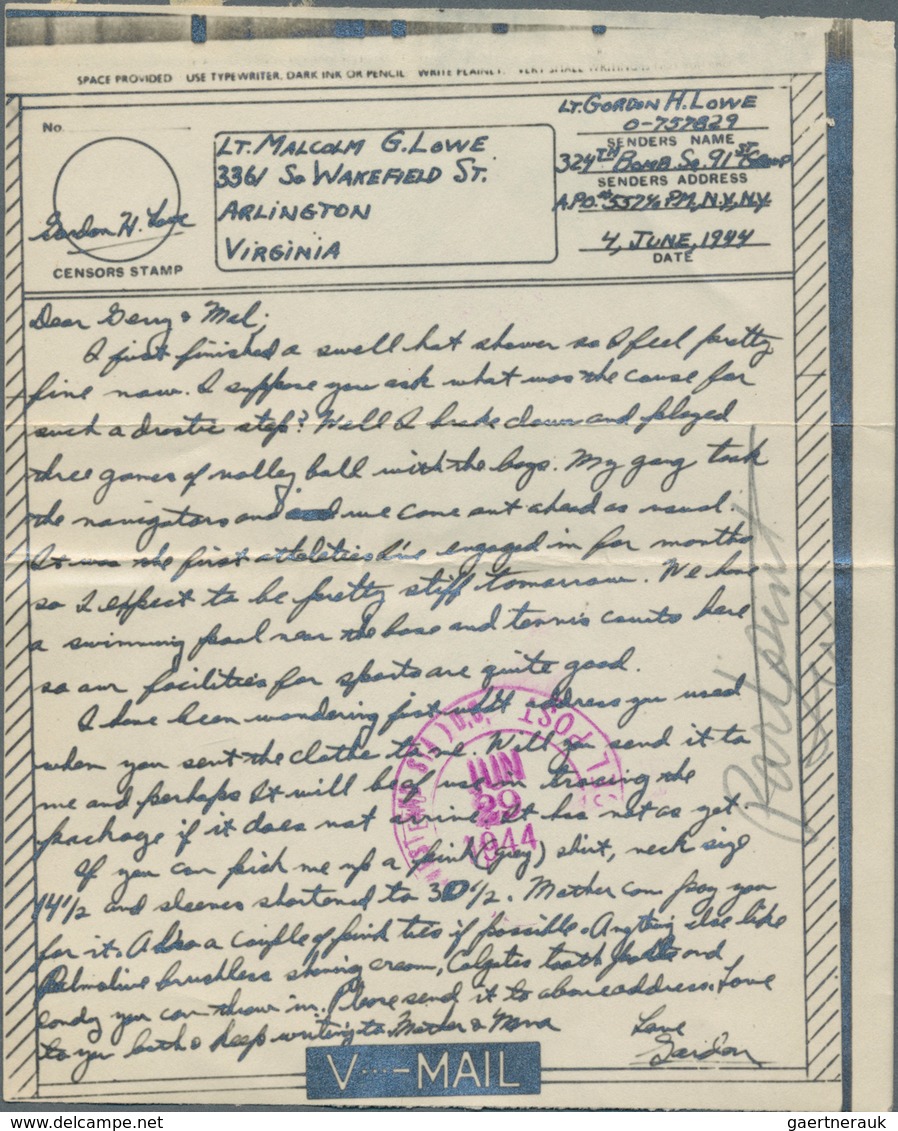 SPACE PROVIDED USE TYPEWRITER, DARK INK OR PENCIL WRITE PLAINLY. VERY SMALL WRITING
No.
Gordon H. Lowe
CENSORS STAMP
LT. MALCOLM G. LOWE
3361 SO WAKEFIELD ST.
ARLINGTON
VIRGINIA
LT. GORDON H. LOWE
O-757829
SENDERS NAME
324TH BOMB SQ. 91ST GROUP
SENDERS ADDRESS
A.P.O. #557 % PM, N.Y., N.Y.
4, JUNE, 1944
DATE
Dear Gerry & Mal;
I just finished a swell hot shower so I feel pretty
fine now. I suppose you ask what was the cause for
such a drastic step? Well I broke down and played
three games of volley ball with the boys. My gang took
the navigators and we came out ahead as usual.
It was the first athletics I've engaged in for months
so I expect to be pretty stiff tomorrow. We have
a swimming pool near the base and tennis courts here
so our facilities for sports are quite good.
I have been wondering just what address you used
when you sent the clothe to me. Will you send it to
me and perhaps it will be of use in tracing the
package if it does not arrive. It has not as yet.
If you can pick me up a pink (grey) shirt, neck size
14 1/2 and sleeves shortened to 30 1/2. Mother can pay you
for it. Also a couple of pink ties if possible. Anything else like
Palmolive brushless shaving cream, Colgates tooth and
candy you can throw in. Please send it to above address. Love
to you both & keep writing to Mother &
Love
Gordon
L POST
JUN
29
1944
V···-MAIL
www.delcampe.net
gaertnerauk